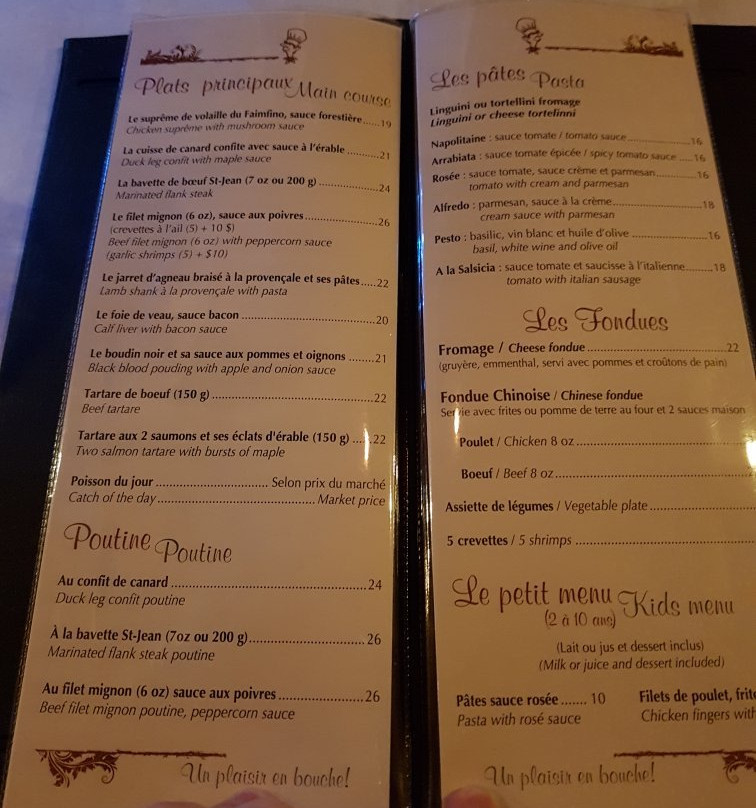 Plats principaux Main course
Le suprême de volaille du Faimfino, sauce forestière.....19
Chicken suprême with mushroom sauce
La cuisse de canard confite avec sauce à l'érable ........21
Duck leg confit with maple sauce
La bavette de bœuf St-Jean (7 oz ou 200 g) ...............24
Marinated flank steak
Le filet mignon (6 oz), sauce aux poivres.....................26
(crevettes à l'ail (5) + 10 $)
Beef filet mignon (6 oz) with peppercorn sauce
(garlic shrimps (5) + $10)
Le jarret d'agneau braisé à la provençale et ses pâtes.....22
Lamb shank à la provençale with pasta
Le foie de veau, sauce bacon ....................................20
Calf liver with bacon sauce
Le boudin noir et sa sauce aux pommes et oignons ........21
Black blood pouding with apple and onion sauce
Tartare de boeuf (150 g) ...........................................22
Beef tartare
Tartare aux 2 saumons et ses éclats d'érable (150 g) .....22
Two salmon tartare with bursts of maple
Poisson du jour ............................ Selon prix du marché
Catch of the day....................................... Market price
Poutine Poutine
Au confit de canard ..................................................24
Duck leg confit poutine
À la bavette St-Jean (7oz ou 200 g).............................26
Marinated flank steak poutine
Au filet mignon (6 oz) sauce aux poivres .....................26
Beef filet mignon poutine, peppercorn sauce
Un plaisir en bouche!
Les pâtes Pasta
Linguini ou tortellini fromage
Linguini or cheese tortelinni
Napolitaine : sauce tomate / tomato sauce................16
Arrabiata : sauce tomate épicée / spicy tomato sauce ....16
Rosée : sauce tomate, sauce crème et parmesan..........16
tomato with cream and parmesan
Alfredo : parmesan, sauce à la crème........................18
cream sauce with parmesan
Pesto : basilic, vin blanc et huile d'olive ....................16
basil, white wine and olive oil
A la Salsicia : sauce tomate et saucisse à l'italienne........18
tomato with italian sausage
Les Fondues
Fromage / Cheese fondue ........................................22
(gruyère, emmenthal, servi avec pommes et croûtons de pain)
Fondue Chinoise / Chinese fondue
Servie avec frites ou pomme de terre au four et 2 sauces maison
Poulet / Chicken 8 oz.............................................
Boeuf / Beef 8 oz..................................................
Assiette de légumes / Vegetable plate..........................
5 crevettes / 5 shrimps ............................................
Le petit menu Kids menu
(2 à 10 ans)
(Lait ou jus et dessert inclus)
(Milk or juice and dessert included)
Pâtes sauce rosée ....... 10 Filets de poulet, frite
Pasta with rosé sauce Chicken fingers with
Un plaisir en bouche!